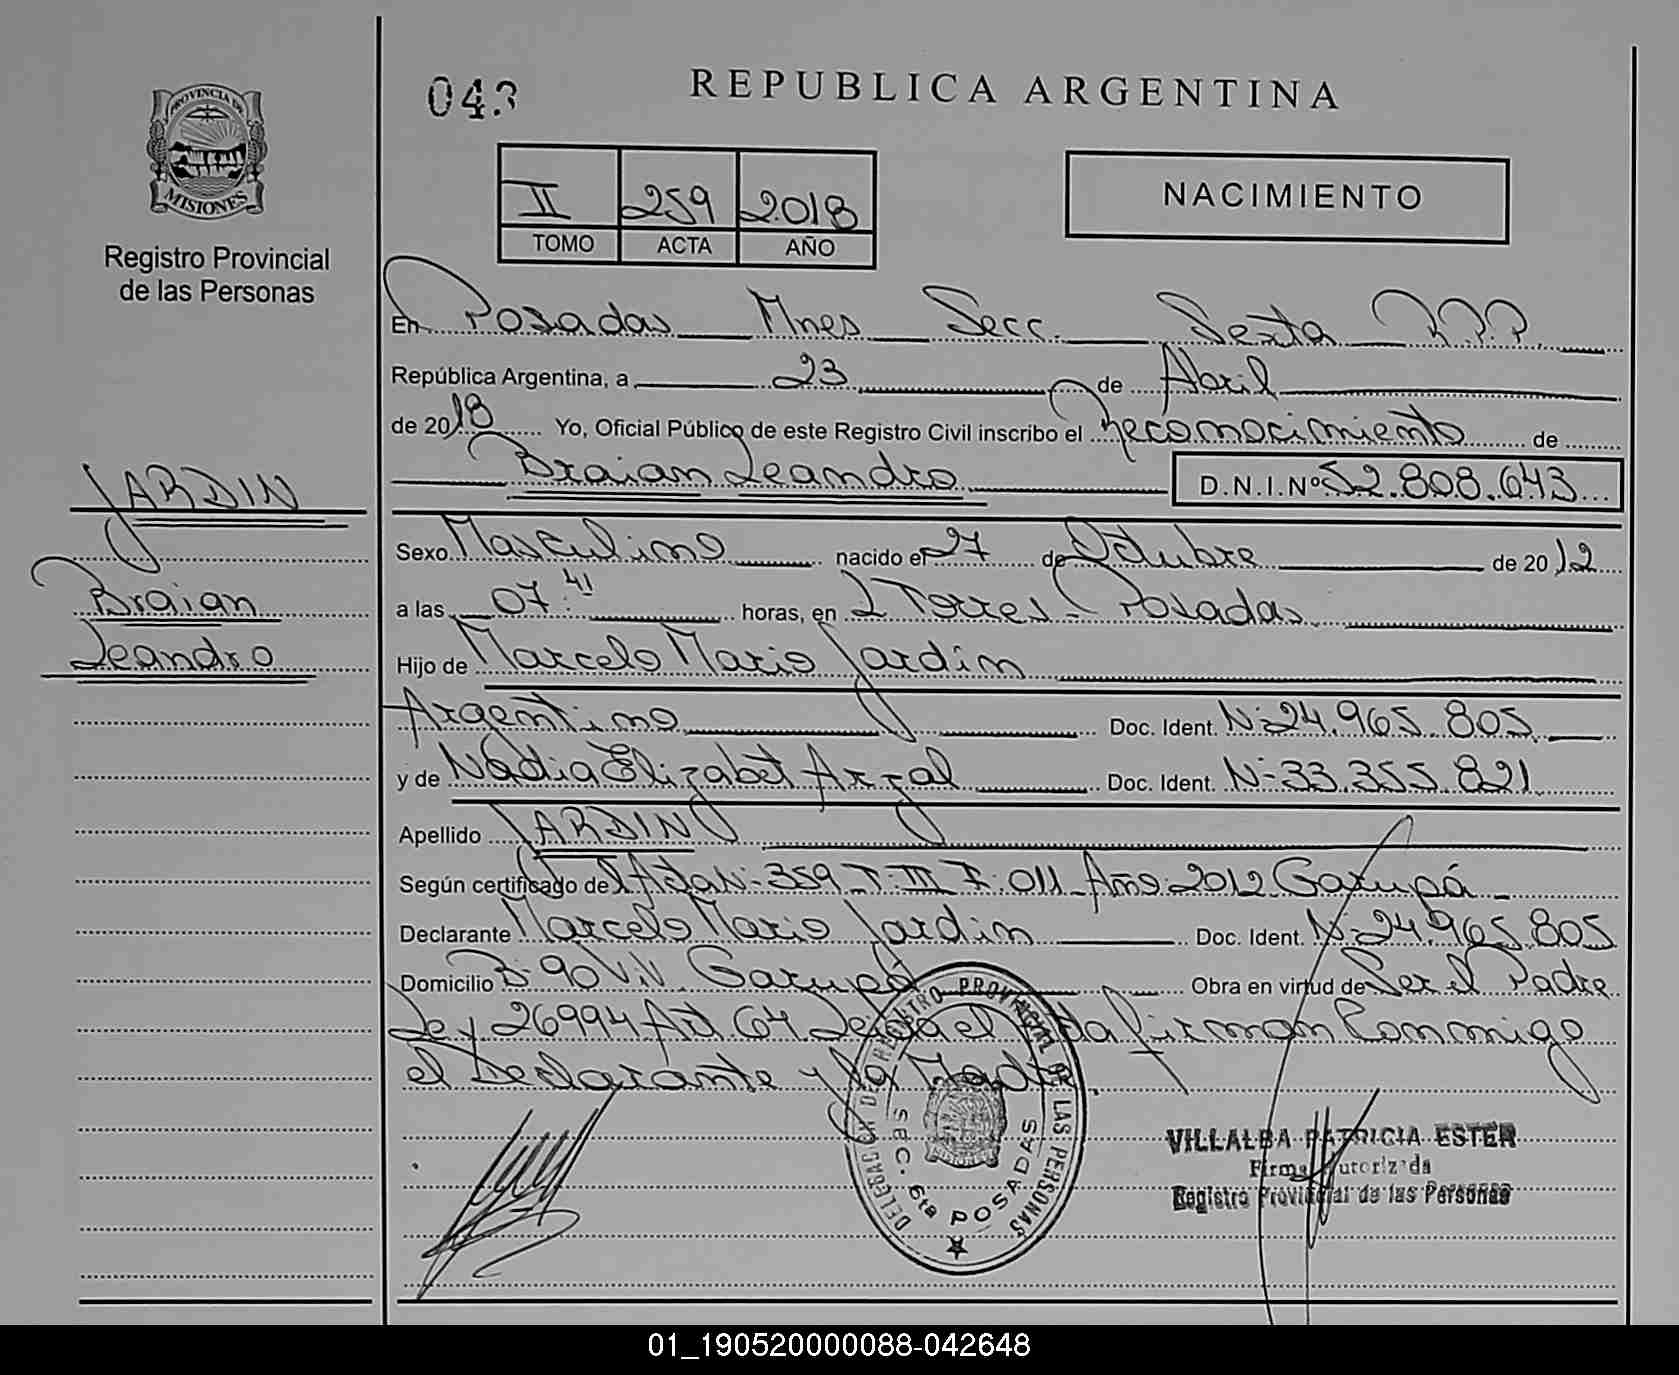 043
REPUBLICA ARGENTINA
PROVINCIA DE
MISIONES
Registro Provincial
de las Personas
II 259 2018
TOMO ACTA AÑO
NACIMIENTO
En Posadas Mnes Secc. Sexta R.P.P.
República Argentina, a 23 de Abril
de 2018 Yo, Oficial Público de este Registro Civil inscribo el Reconocimiento de
Braian Leandro D.N.I.Nº 52.808.643
JARDIN
Braian
Leandro
Sexo Masculino nacido el 27 de Octubre de 2012
a las 07:41 horas, en L Torres - Posadas
Hijo de Marcelo Mario Jardin
Argentino Doc. Ident. Nº 24.965.805
y de Nadia Elizabet Doc. Ident. Nº 33.355.821
Apellido JARDIN
Según certificado de Acta Nº 359 T: III F: 011 Año: 2012 Garupá
Declarante Marcelo Mario Jardin Doc. Ident. Nº 24.965.805
Domicilio Bº 90 Viv. Garupá Obra en virtud de Ser el Padre
Ley 26994 Art. 64 Leida el firman Conmigo
el Declarante y la Madre.
DELEGACION DEL REGISTRO PROVINCIAL DE LAS PERSONAS
SEC. 6ta POSADAS
MISIONES
VILLALBA PATRICIA ESTER
Firma Autorizada
Registro Provincial de las Personas
01_190520000088-042648